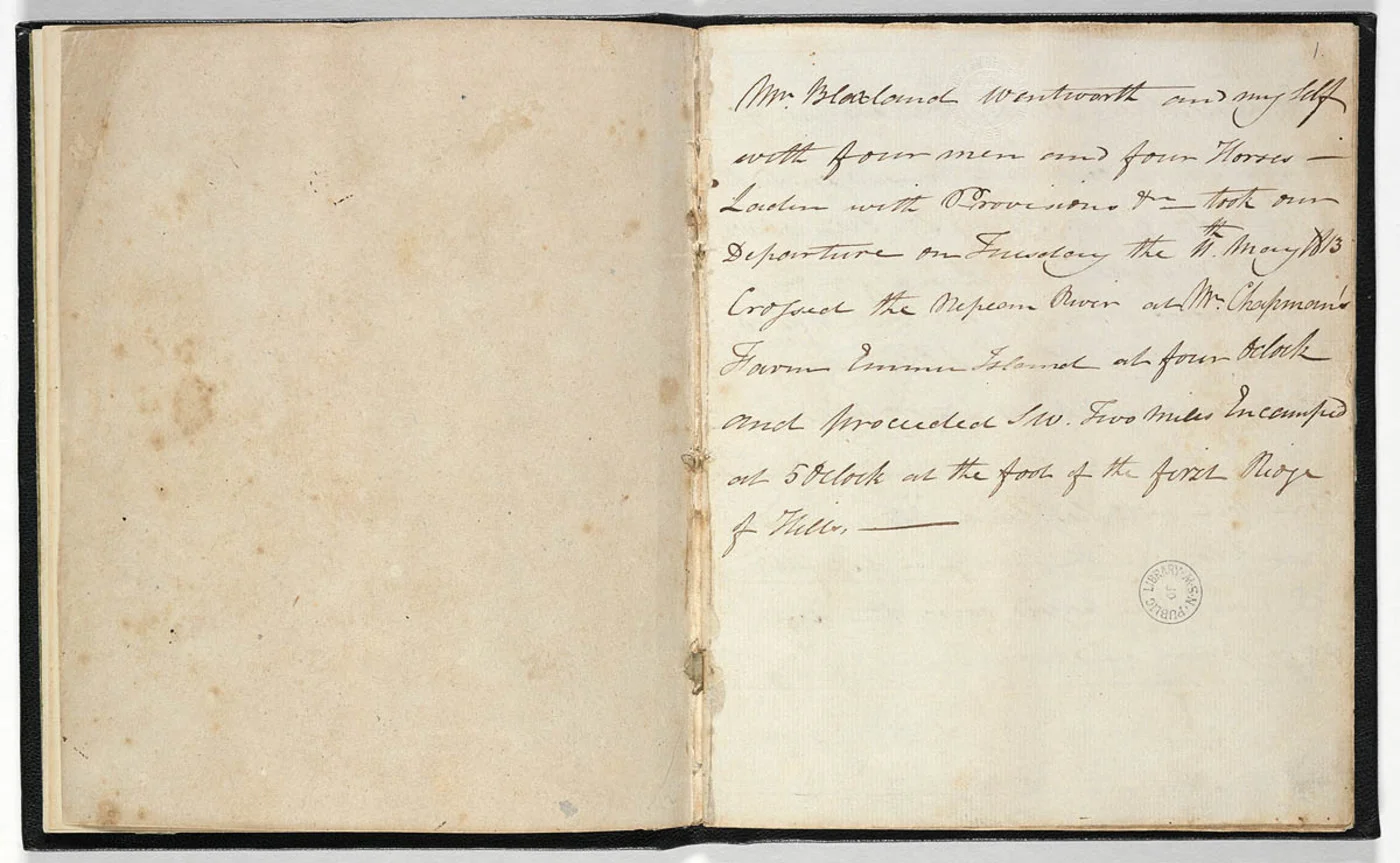 1.
Mr. Blaxland Wentworth and my Self
with four men and four Horses —
Laden with Provisions &c — took our
Departure on Tuesday the 11th. May 1813
Crossed the Nepean River at Mr. Chapman's
Farm Emmu Island at four Oclock
and proceeded SW. Two miles Encamped
at 5 Oclock at the foot of the first Ridge
of Hills. —
PUBLIC LIBRARY N.S.W.